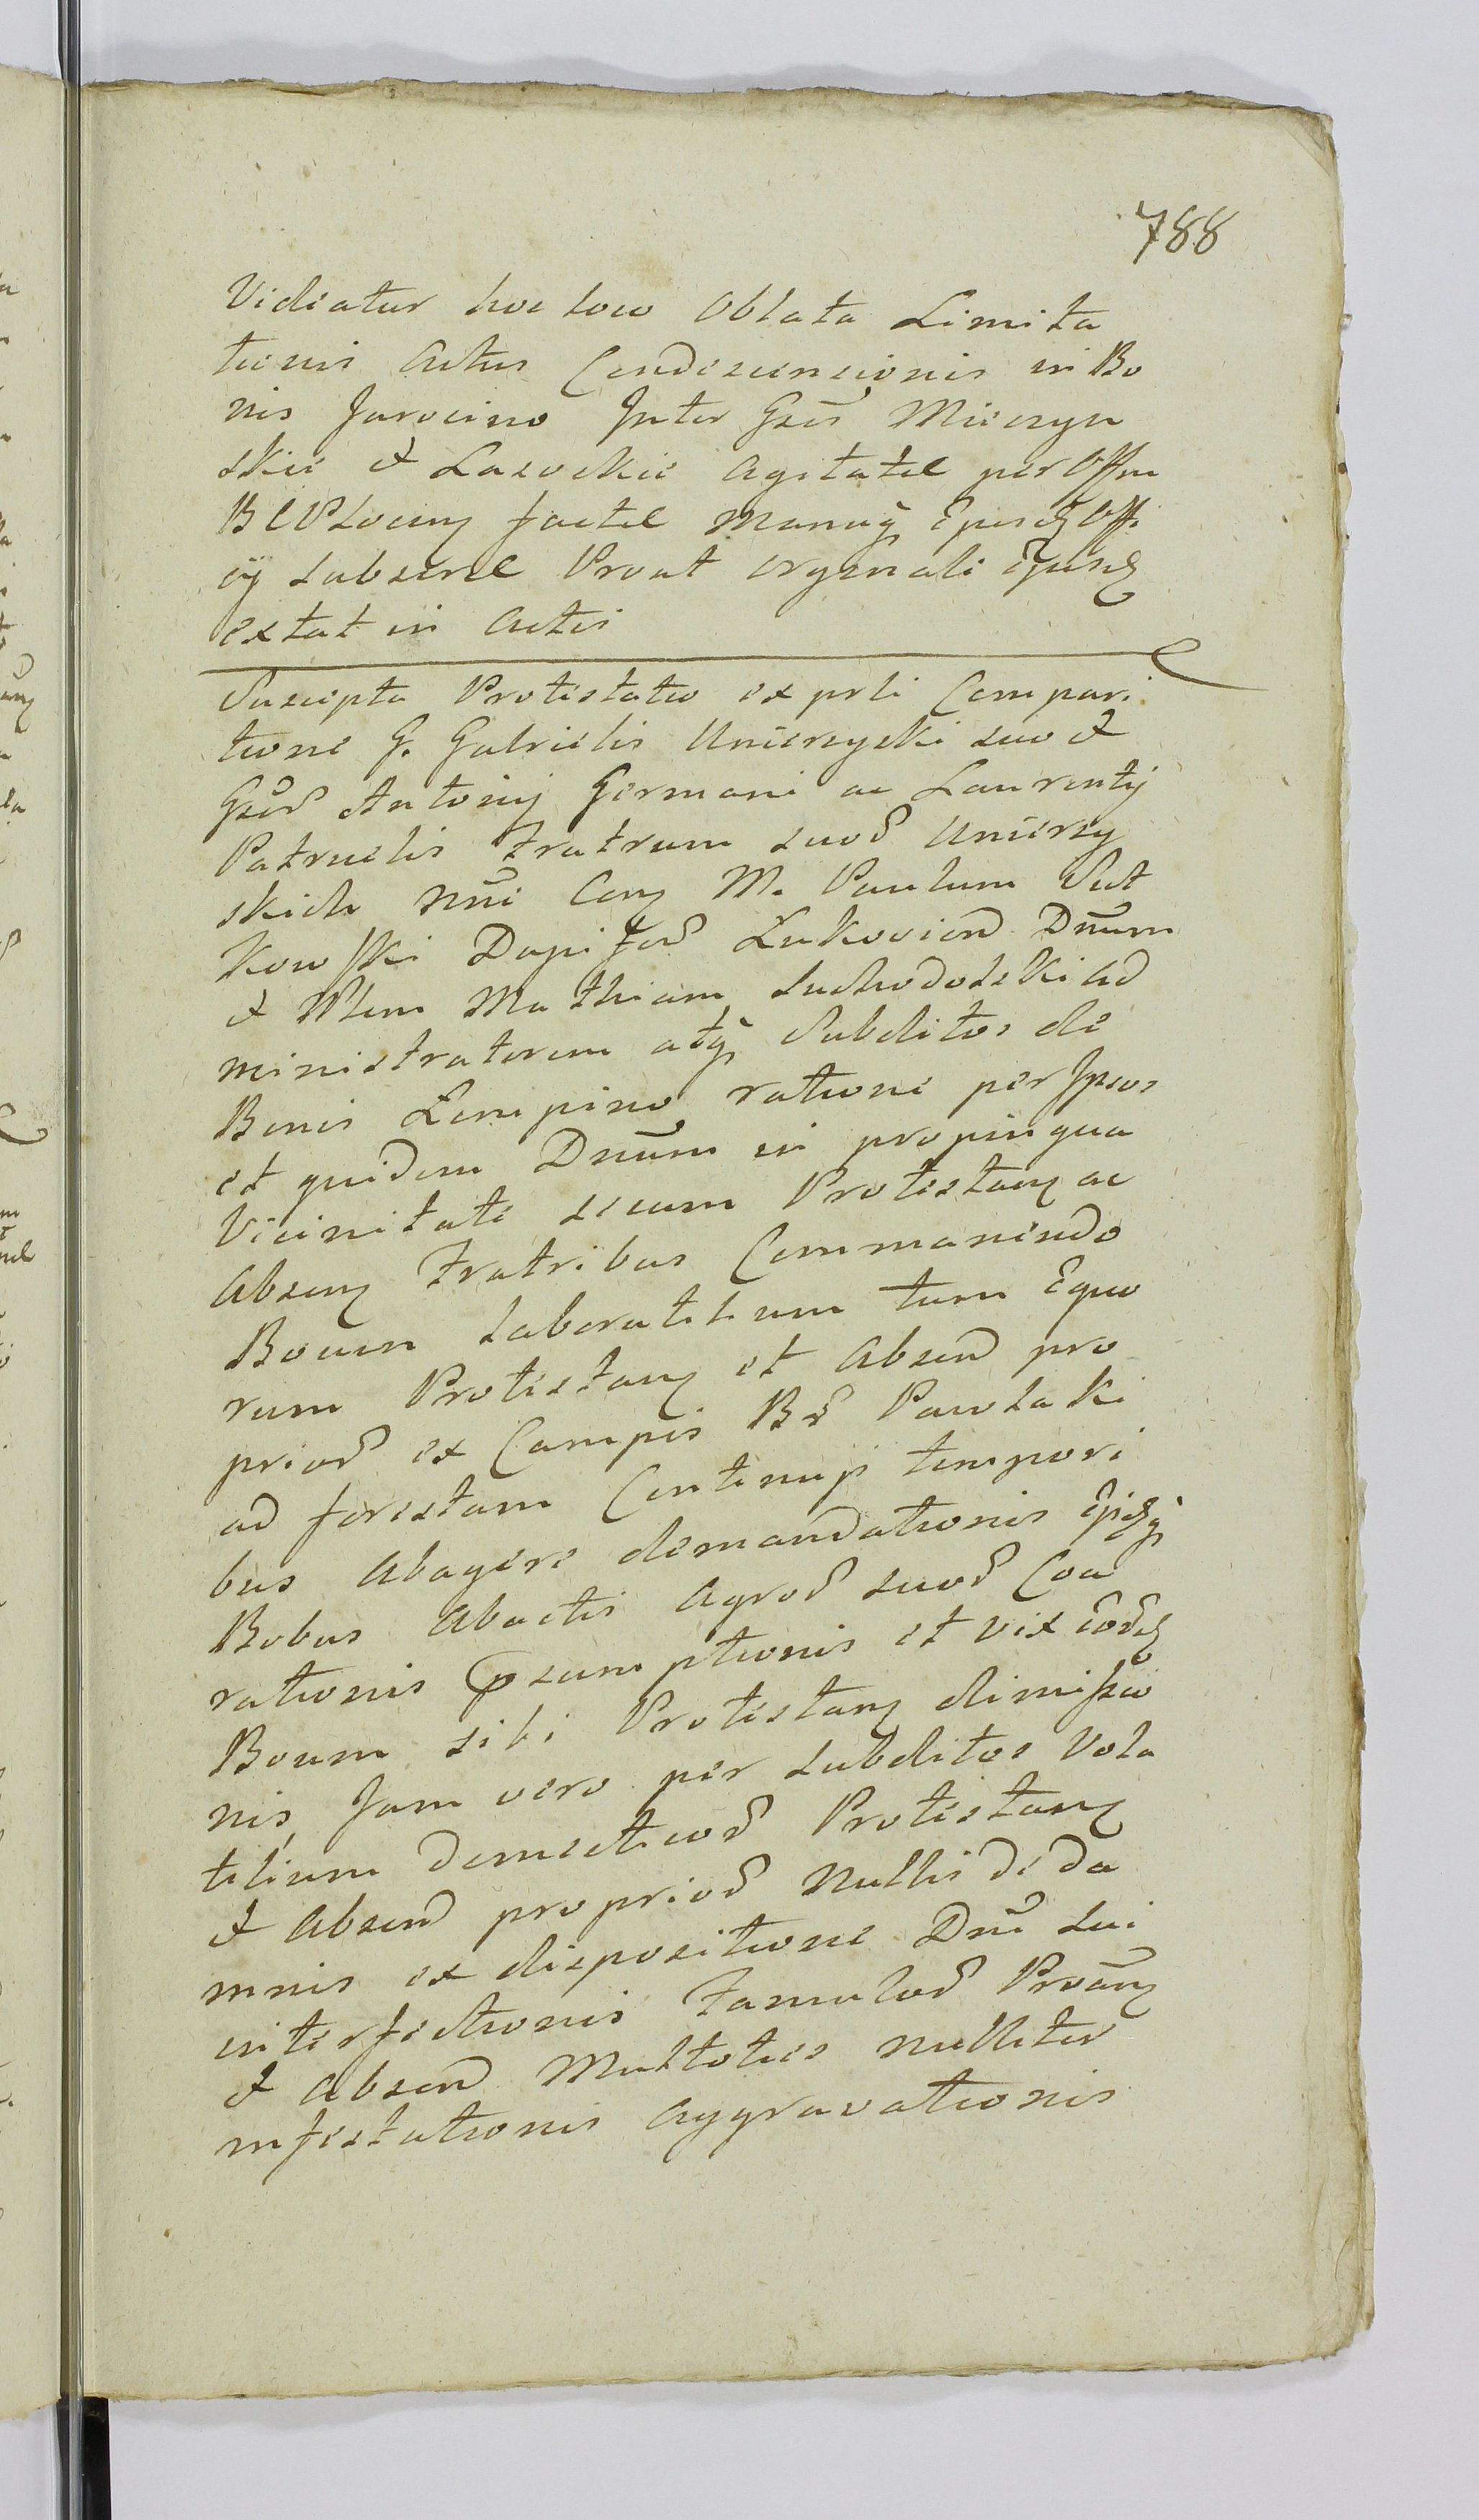 788
Videatur hoc loco Oblata Limita
tionis Actus Condescensionis in Bo
nis Jarocino Inter Gsos Mieczyn
skie et Lasockie Agitatae per Offm
factae manuq
ij subscriae Prout orgenali
extat in Actis
Suscepta Protestatio ex prti Compari
tione G. Gabrielis Unierzyski suo et
Gsor Antonij Germani ac Laurentij
Patruelis Fratrum suor Unierzy
skich nni Con M. Paulum Sut
kowski Dapifer Lukovien Dnum
et Nlem Mathiam Suchodolski Ad
ministratorem atq Subditos de
Bonis Lempino ratione per Ipsos
et quidem Dnum in propinqua
Vicinitate secum Protestan ac
Absen Fratribus Commanendo
Bouum laboratilium tum Equo
rum Protestan et Absen pro
prior ex Campis Br Pawlaki
ad forestam Continuis tempori
bus Abagere demandationis
Bobus Abactis Agror suor Coa
rationis Psumptionis et vix
Bouum sibi Protestan dimissio
nis Jam vero per subditos Vola
tilium domesticor Protestan
et Absen proprior Nullis de da
mnis ex dispositione Dni sui
interfectionis Famulor Proan
et Absen Multoties nulliter
infestationis Aggravationis